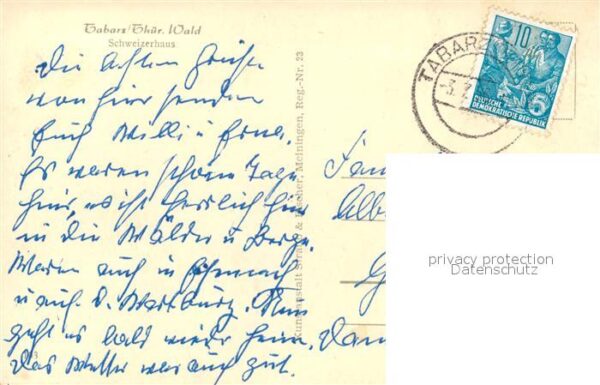 Tabarz/Thür. Wald
Schweizerhaus
Die besten Grüße
von hier senden
Euch Willi u Erna.
Es waren schöne Tage
hier, es ist herrlich hier
in die Wälder u Berge.
Waren auch in Eisenach
u auf d. Wartburg. Nun
geht es bald wieder heim.
Das Wetter war auch gut.
Kunstanstalt Straub & Fischer, Meiningen, Reg.-Nr. 23
TABARZ
10
5
DEUTSCHE
DEMOKRATISCHE REPUBLIK
Fam
Alb
G
Dan
privacy protection
Datenschutz